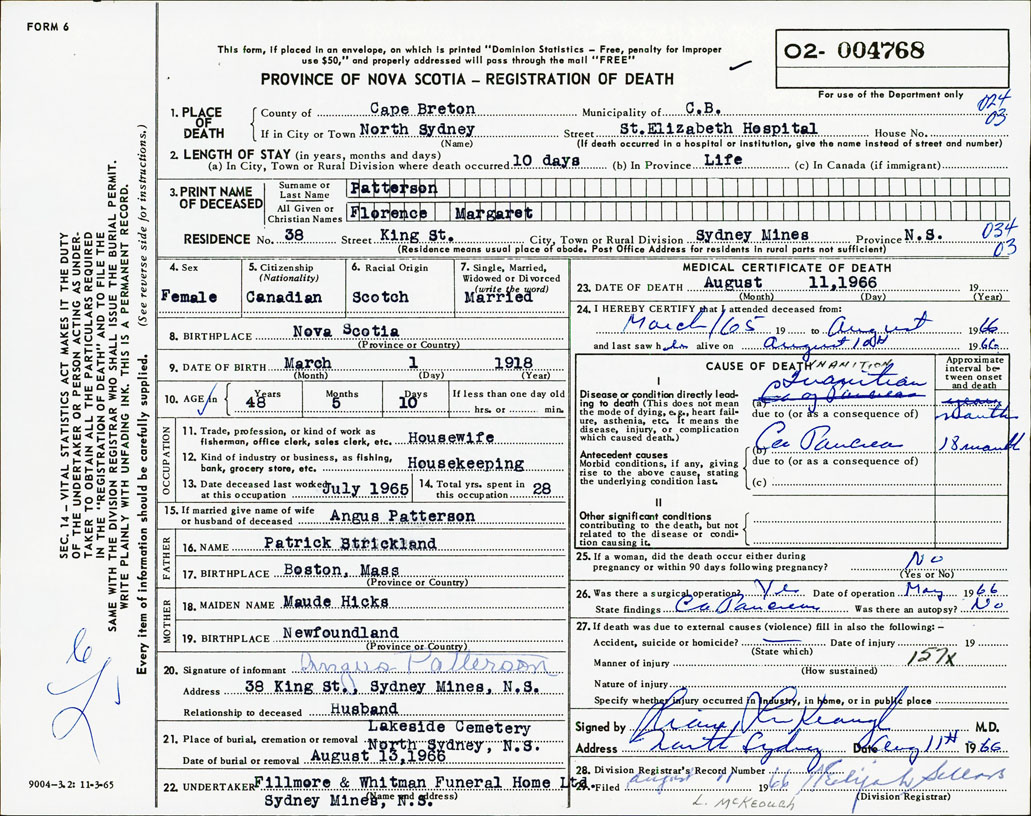 FORM 6
This form, if placed in an envelope, on which is printed "Dominion Statistics – Free, penalty for improper
use $50," and properly addressed will pass through the mail "FREE"
PROVINCE OF NOVA SCOTIA – REGISTRATION OF DEATH
02- 004768
For use of the Department only
024
03
1. PLACE OF DEATH
County of Cape Breton Municipality of C.B.
If in City or Town North Sydney Street St.Elizabeth Hospital House No.
(Name) (If death occurred in a hospital or institution, give the name instead of street and number)
2. LENGTH OF STAY (in years, months and days)
(a) In City, Town or Rural Division where death occurred 10 days (b) In Province Life (c) In Canada (if immigrant)
3. PRINT NAME OF DECEASED
Surname or Last Name Patterson
All Given or Christian Names Florence Margaret
RESIDENCE No. 38 Street King St. City, Town or Rural Division Sydney Mines Province N.S.
(Residence means usual place of abode. Post Office Address for residents in rural parts not sufficient)
034
03
4. Sex
Female
5. Citizenship
(Nationality)
Canadian
6. Racial Origin
Scotch
7. Single, Married,
Widowed or Divorced
(write the word)
Married
8. BIRTHPLACE Nova Scotia
(Province or Country)
9. DATE OF BIRTH March 1 1918
(Month) (Day) (Year)
10. AGE in Years Months Days If less than one day old
48 5 10 hrs. or min.
OCCUPATION
11. Trade, profession, or kind of work as
fisherman, office clerk, sales clerk, etc. Housewife
12. Kind of industry or business, as fishing,
bank, grocery store, etc. Housekeeping
13. Date deceased last worked
at this occupation July 1965
14. Total yrs. spent in
this occupation 28
15. If married give name of wife
or husband of deceased Angus Patterson
FATHER
16. NAME Patrick Strickland
17. BIRTHPLACE Boston, Mass
(Province or Country)
MOTHER
18. MAIDEN NAME Maude Hicks
19. BIRTHPLACE Newfoundland
(Province or Country)
20. Signature of informant Angus Patterson
Address 38 King St., Sydney Mines, N.S.
Relationship to deceased Husband
21. Place of burial, cremation or removal Lakeside Cemetery
North Sydney, N.S.
Date of burial or removal August 13,1966
22. UNDERTAKER Fillmore & Whitman Funeral Home Ltd.
(Name and address)
Sydney Mines, N.S.
MEDICAL CERTIFICATE OF DEATH
23. DATE OF DEATH August 11,1966 19
(Month) (Day) (Year)
24. I HEREBY CERTIFY that I attended deceased from:
March/65 19 to August 1966
and last saw her alive on August 10th 1966
CAUSE OF DEATH
INANITION
Approximate
interval be-
tween onset
and death
I
Disease or condition directly lead-
ing to death (This does not mean
the mode of dying, e.g., heart fail-
ure, asthenia, etc. It means the
disease, injury, or complication
which caused death.)
(a) Inanition
Ca of Pancreas
due to (or as a consequence of)
Antecedent causes
Morbid conditions, if any, giving
rise to the above cause, stating
the underlying condition last.
(b) Ca Pancreas 18 month
due to (or as a consequence of)
(c)
II
Other significant conditions
contributing to the death, but not
related to the disease or condi-
tion causing it.
25. If a woman, did the death occur either during
pregnancy or within 90 days following pregnancy? No
(Yes or No)
26. Was there a surgical operation? Yes Date of operation May 1966
State findings Ca Pancreas Was there an autopsy? No
27. If death was due to external causes (violence) fill in also the following: –
Accident, suicide or homicide? Date of injury 19
(State which)
Manner of injury 157x
(How sustained)
Nature of injury
Specify whether injury occurred in industry, in home, or in public place
Signed by M.D.
Address North Sydney Date Aug 11th 1966
28. Division Registrar's Record Number
29. Filed August 11 1966
(Division Registrar)
L. McKEOUGH
SEC. 14 – VITAL STATISTICS ACT MAKES IT THE DUTY
OF THE UNDERTAKER OR PERSON ACTING AS UNDER-
TAKER TO OBTAIN ALL THE PARTICULARS REQUIRED
IN THE "REGISTRATION OF DEATH" AND TO FILE THE
SAME WITH THE DIVISION REGISTRAR WHO SHALL ISSUE THE BURIAL PERMIT.
WRITE PLAINLY WITH UNFADING INK. THIS IS A PERMANENT RECORD.
Every item of information should be carefully supplied. (See reverse side for instructions.)
9004-3.2: 11-3-65